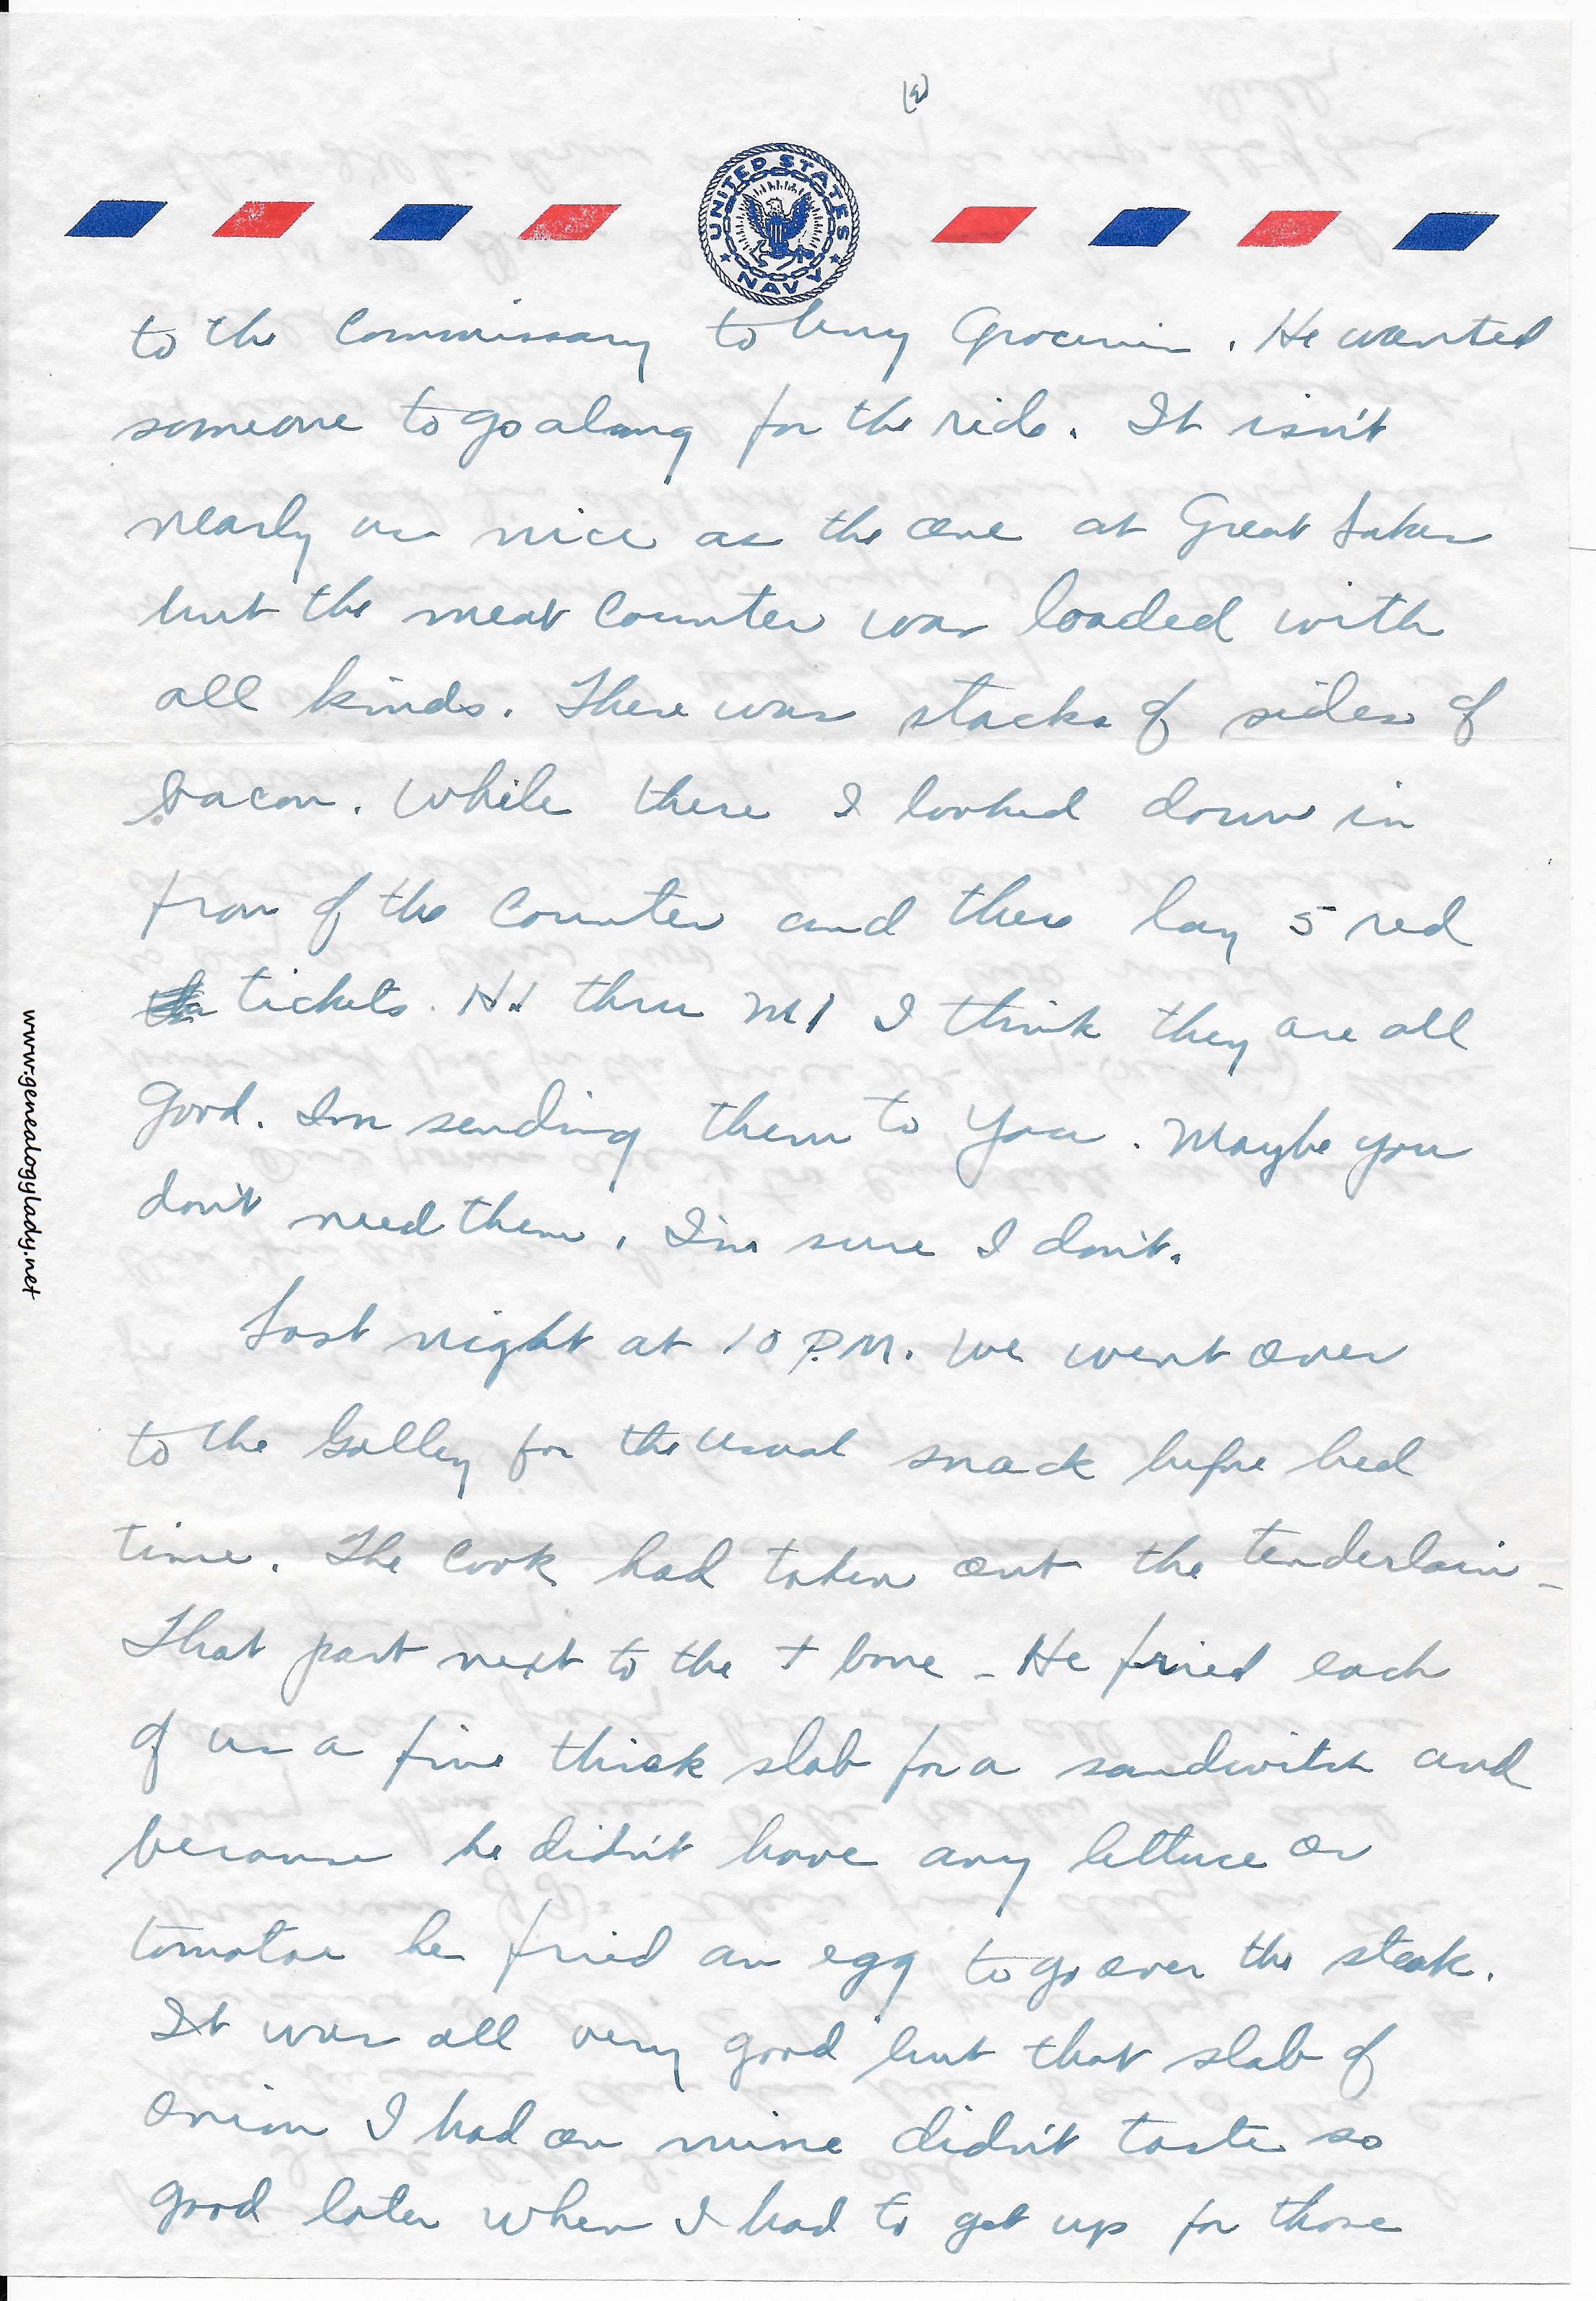 UNITED STATES NAVY
to the Commissary to buy Groceries. He wanted
someone to go along for the ride. It isn't
nearly as nice as the one at Great Lakes
but the meat counter was loaded with
all kinds. There was stacks of sides of
bacon. While there I looked down in
fron of the counter and there lay 5 red
tickets. H1 thru M1 I think they are all
good. Im sending them to you. Maybe you
don't need them. I'm sure I don't.
Last night at 10 P.M. we went over
to the Galley for the usual snack before bed
time. The cook had taken out the tenderloin -
That part next to the T bone - He fried each
of us a fine thick slab for a sandwitch and
because he didn't have any lettuce or
tomatoe he fried an egg to go over the steak.
It was all very good but that slab of
onion I had on mine didn't taste so
good later when I had to get up for those
www.genealogylady.net